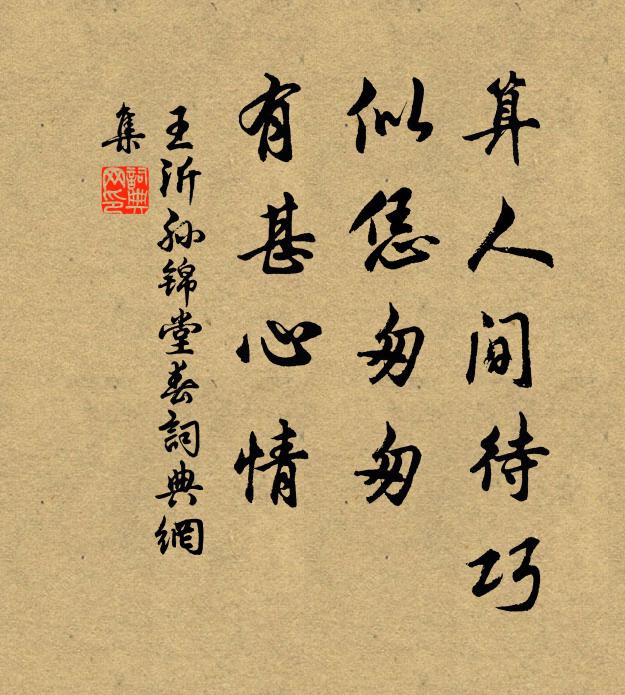 算人间待巧
似恁匆匆
有甚心情
王沂孙锦堂春詞典網
集
詞典网印